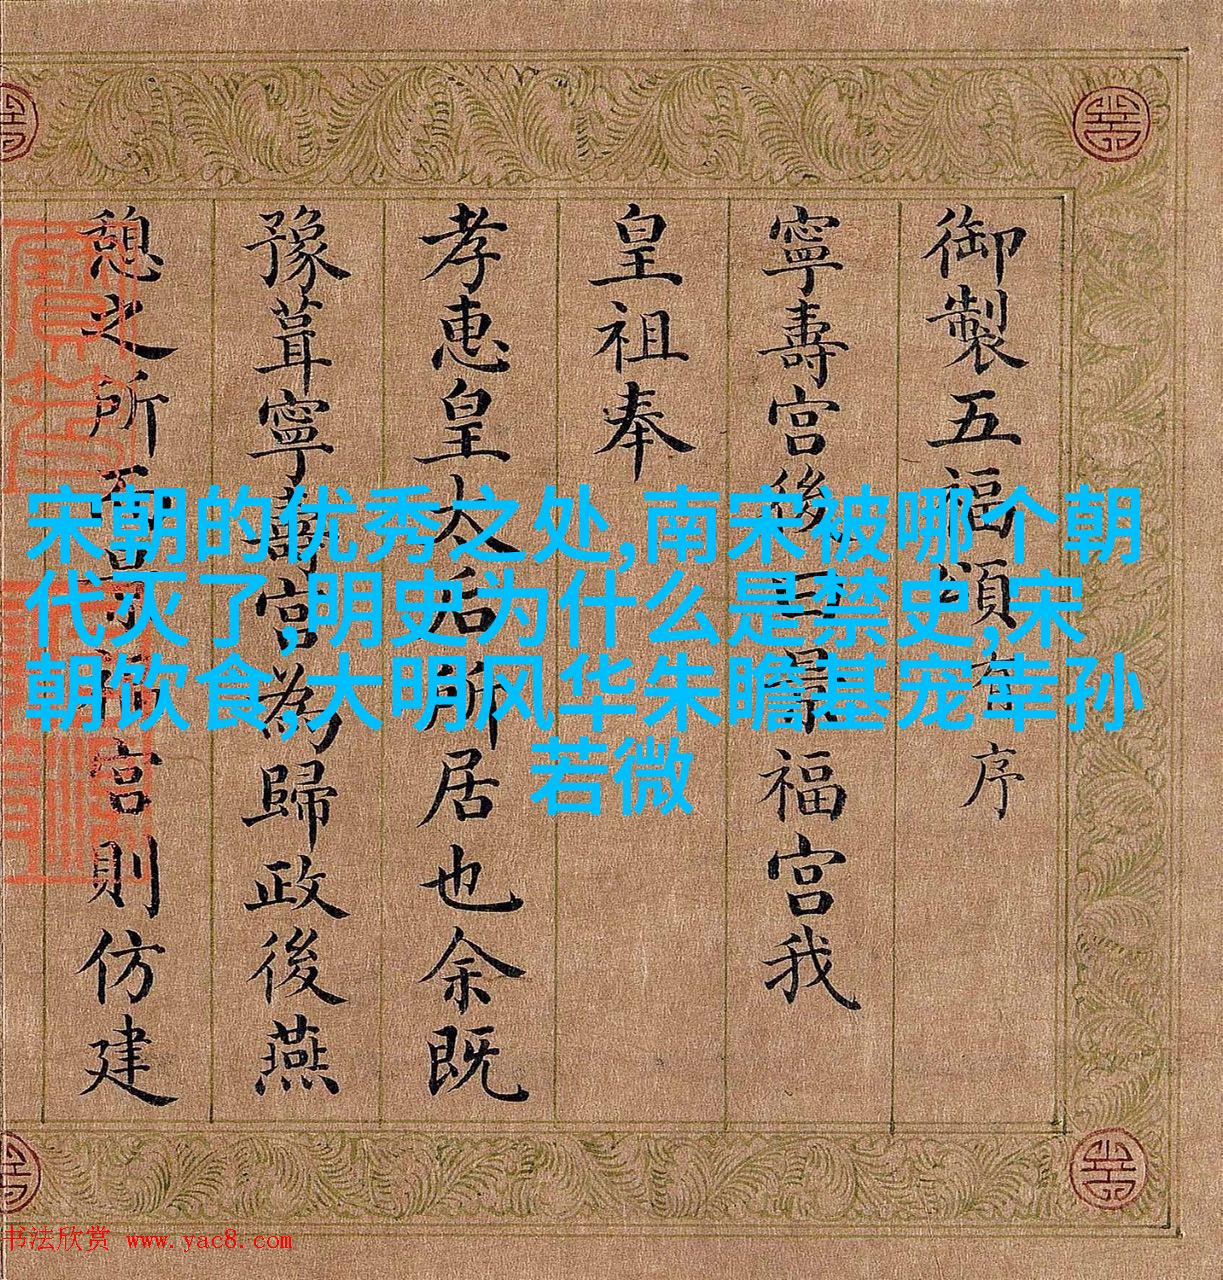 御製五福頌有序
寧壽宮後景福宮我
皇祖奉
孝惠皇太后所居也余既
豫葺寧壽宮為歸政後燕
憩之所而景福宮則仿建
宋朝的优秀之处,南宋被哪个朝
代灭了,明史为什么是禁史,宋
朝饮食,大明风华朱瞻基宠幸孙
若微
书法欣赏 www.yac8.com